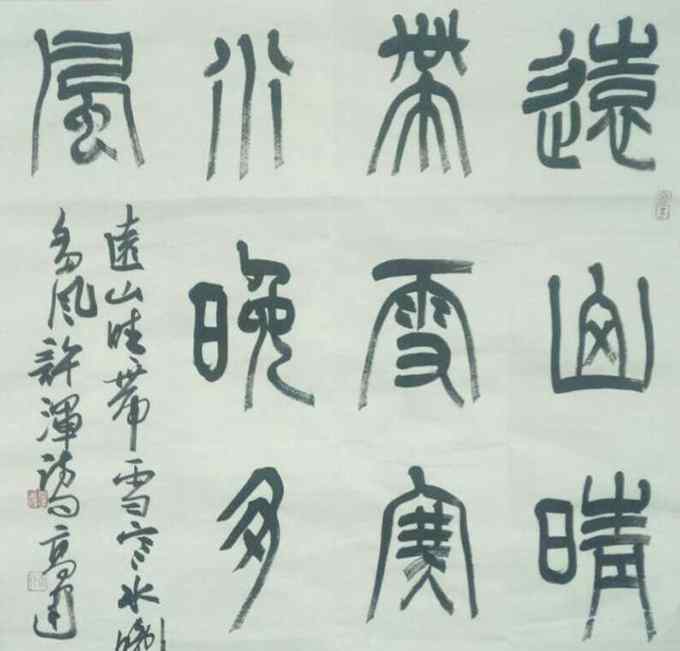 遠山晴
帶雪寒
水晚多
風
遠山晴帶雪寒水晚
多風許渾詩句高